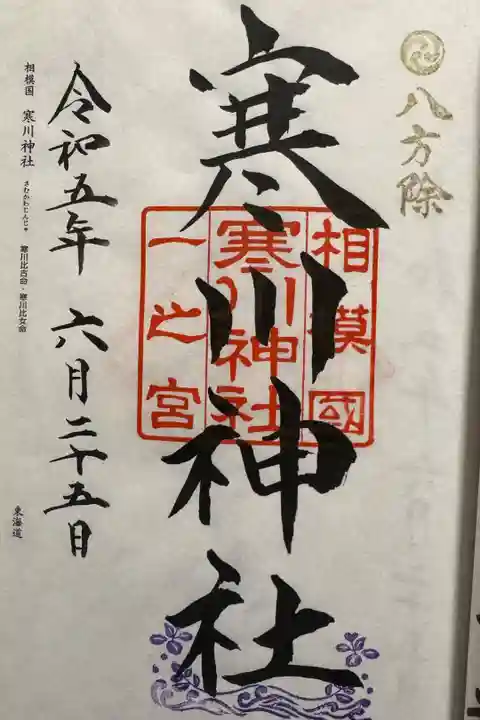 八方除
寒川神社
相模國
寒川神社
一之宮
令和五年 六月二十五日
相模国 寒川神社 さむかわじんじゃ 寒川比古命・寒川比女命
東海道